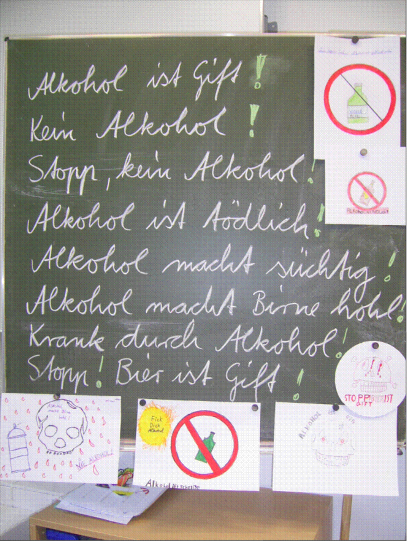 Alkohol ist Gift!
Kein Alkohol!
Stopp, kein Alkohol!
Alkohol ist tödlich!
Alkohol macht süchtig!
Alkohol macht Birne hohl!
Krank durch Alkohol!
Stopp! Bier ist Gift!
STOPP
IST
GIFT